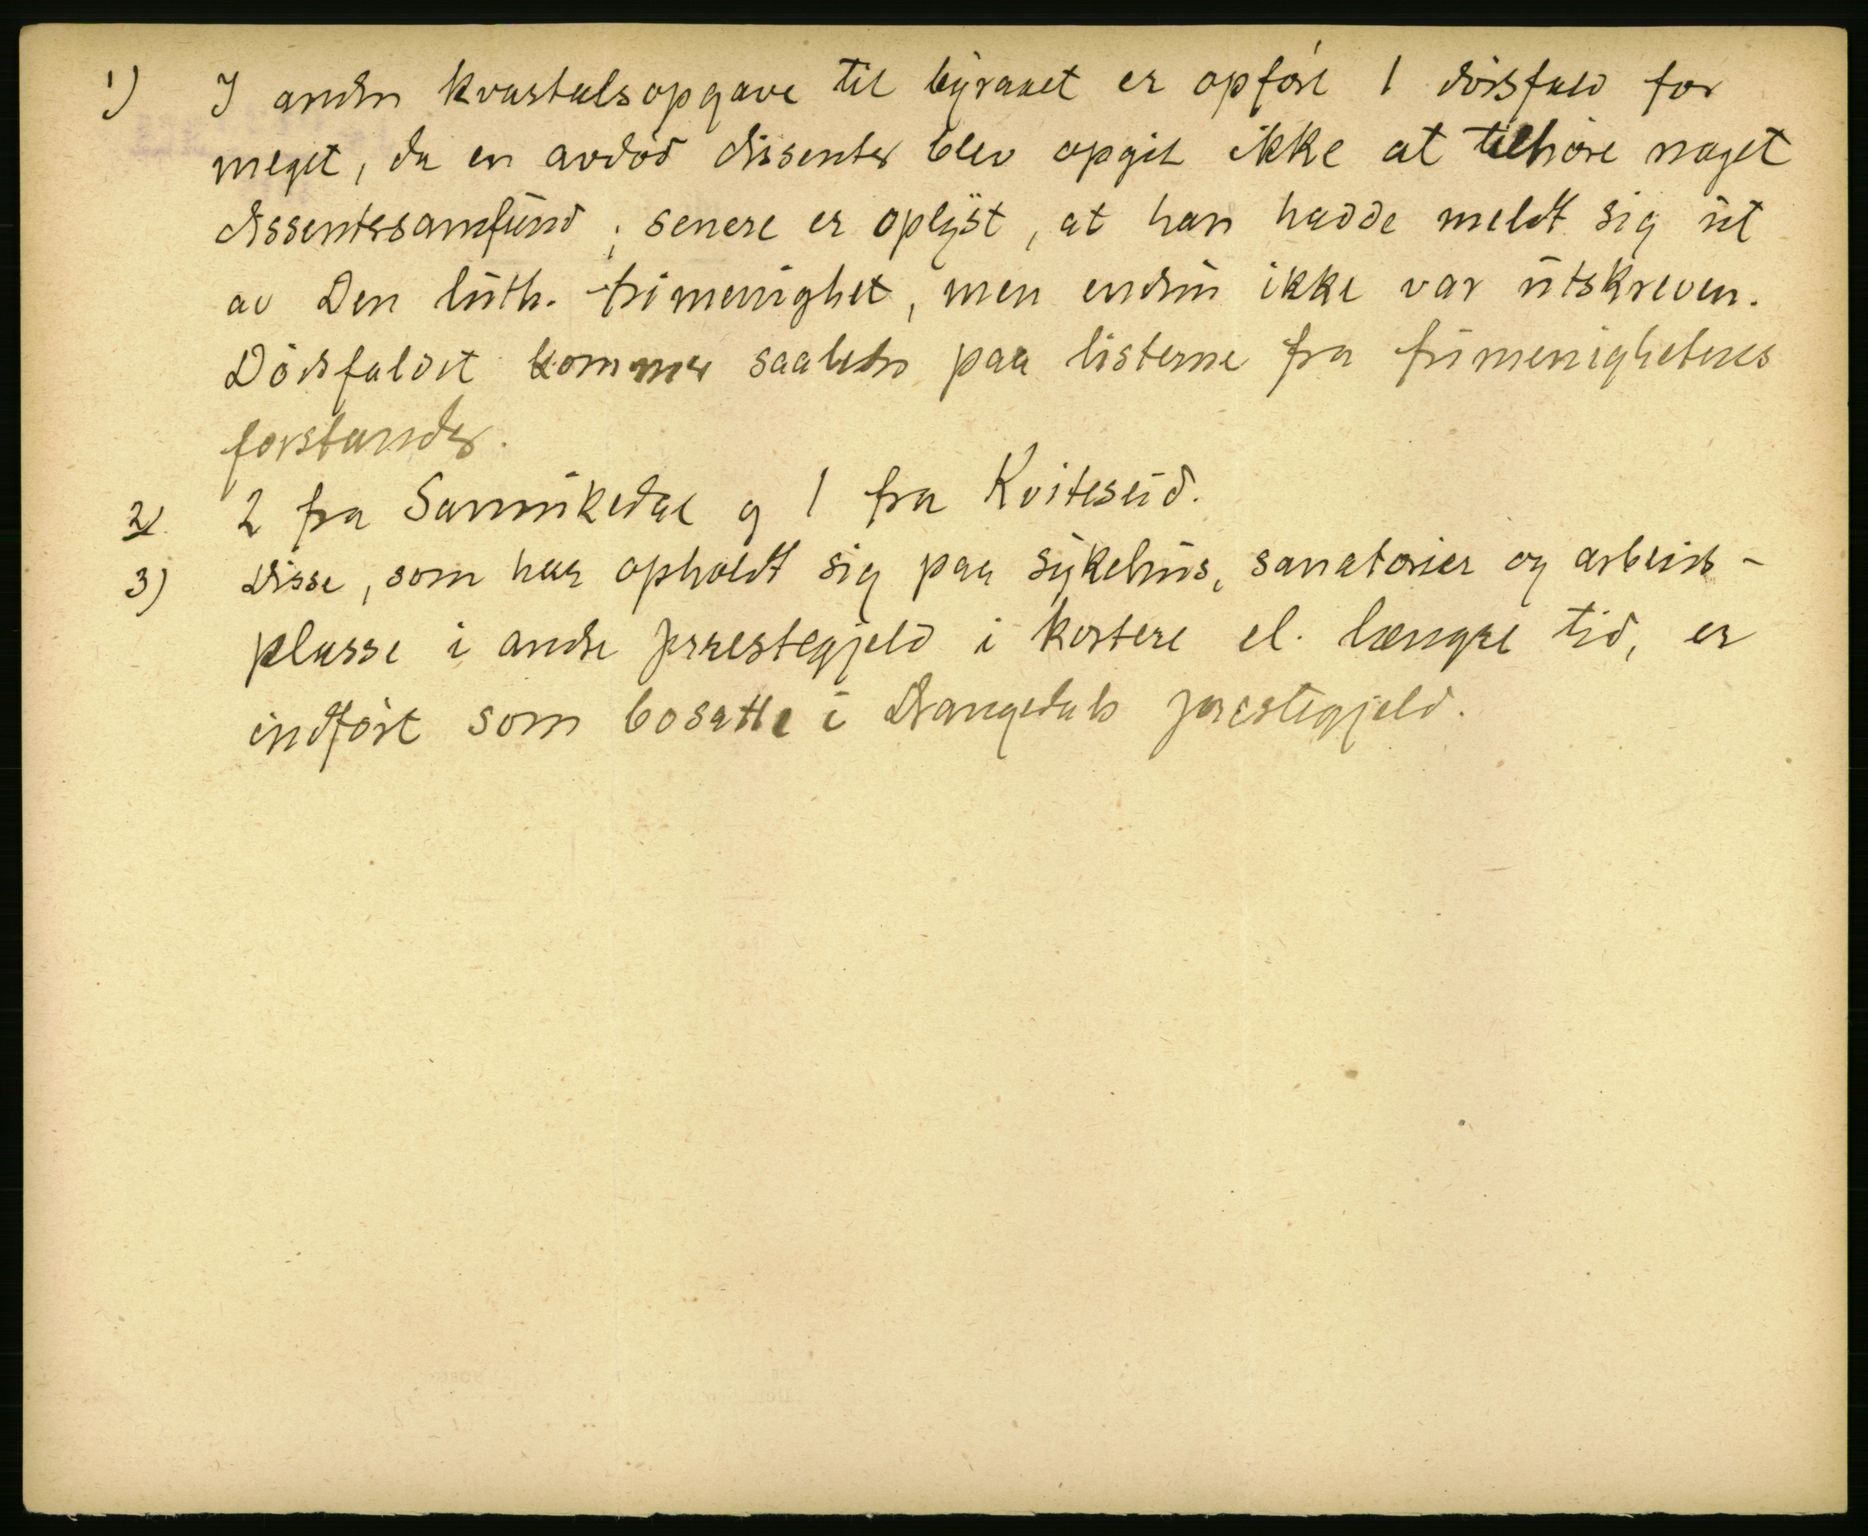 1) I anden kvartalsopgave til byraaet er opført 1 dødsfald for
meget, da en avdød dissenter blev opgit ikke at tilhøre noget
dissentersamfund; senere er oplyst, at han hadde meldt sig ut
av Den luth. frimenighet, men endnu ikke var utskreven.
Dødsfaldet kommer saaledes paa listerne fra frimenighetens
forstander.
2) 2 fra Sannikedal og 1 fra Kviteseid.
3) Disse, som har opholdt sig paa sykehus, sanatorier og arbeids-
plasse i andre prestegjeld i kortere el. længre tid, er
indført som bosatte i Drangedals prestegjeld.